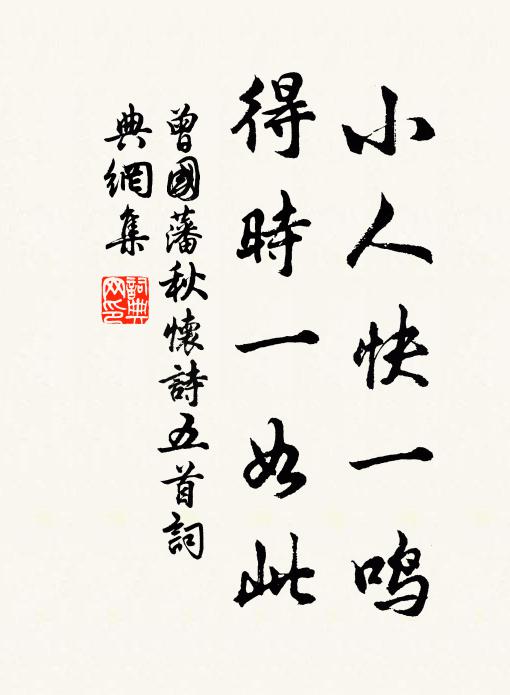 小人快一鸣
得時一如此
曾國藩秋懷詩五首詞
典網集
詞典网印